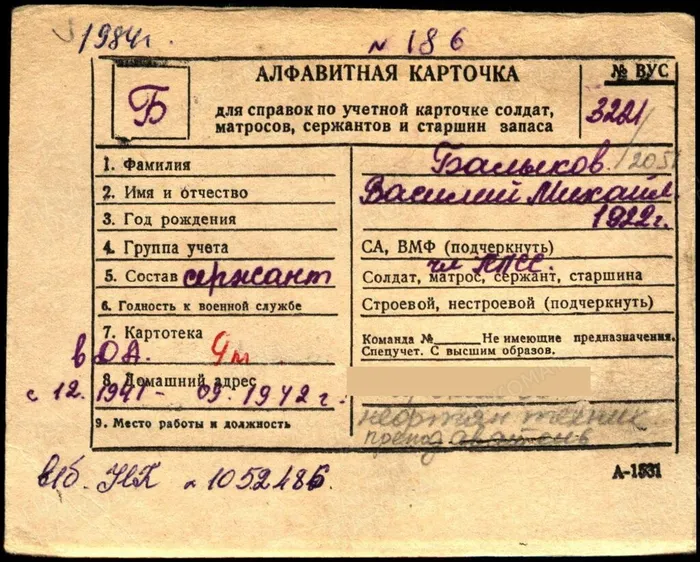 1984г. № 186
АЛФАВИТНАЯ КАРТОЧКА
№ ВУС
Б
для справок по учетной карточке солдат,
матросов, сержантов и старшин запаса
3221
/2051
1. Фамилия Балыков
2. Имя и отчество Василий Михайл.
3. Год рождения 1922 г.
4. Группа учета СА, ВМФ (подчеркнуть)
чл КПСС.
5. Состав сержант Солдат, матрос, сержант, старшина
6. Годность к военной службе Строевой, нестроевой (подчеркнуть)
7. Картотека Команда № Не имеющие предназначения.
Спецучет. С высшим образов.
в ОА.
8. Домашний адрес
с 12.1941 - 09.1942 г.
нефтян техник
9. Место работы и должность препод
выб. УПК № 1052486
А-1531